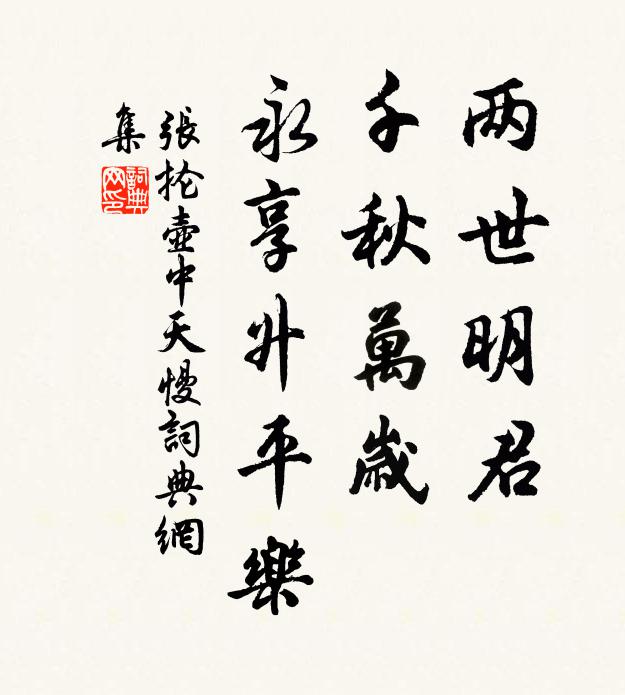 两世明君
千秋萬歲
永享升平樂
張掄壺中天慢詞典網
集
詞典
网印